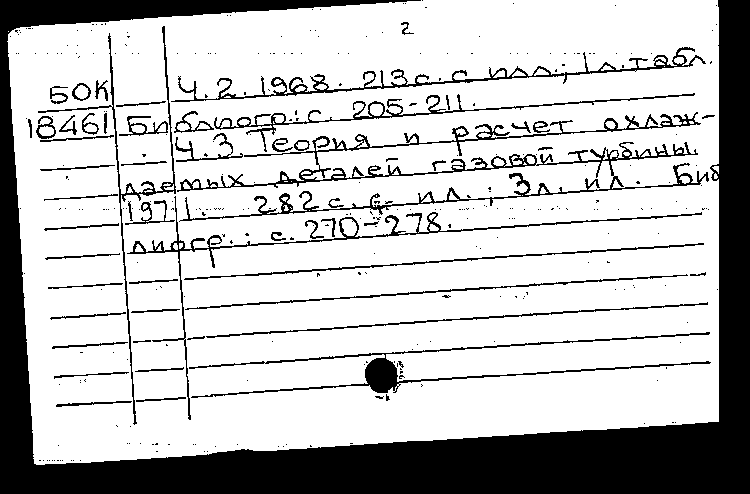 2
БОК Ч.2. 1968. 213 с. с илл.; 1 л. табл.
18461 Библиогр.: с. 205-211.
Ч.3. Теория и расчет охлаж-
даемых деталей газовой турбины.
1971. 282 с. с ил.; 3 л. ил. Биб
лиогр.: с. 270-278.